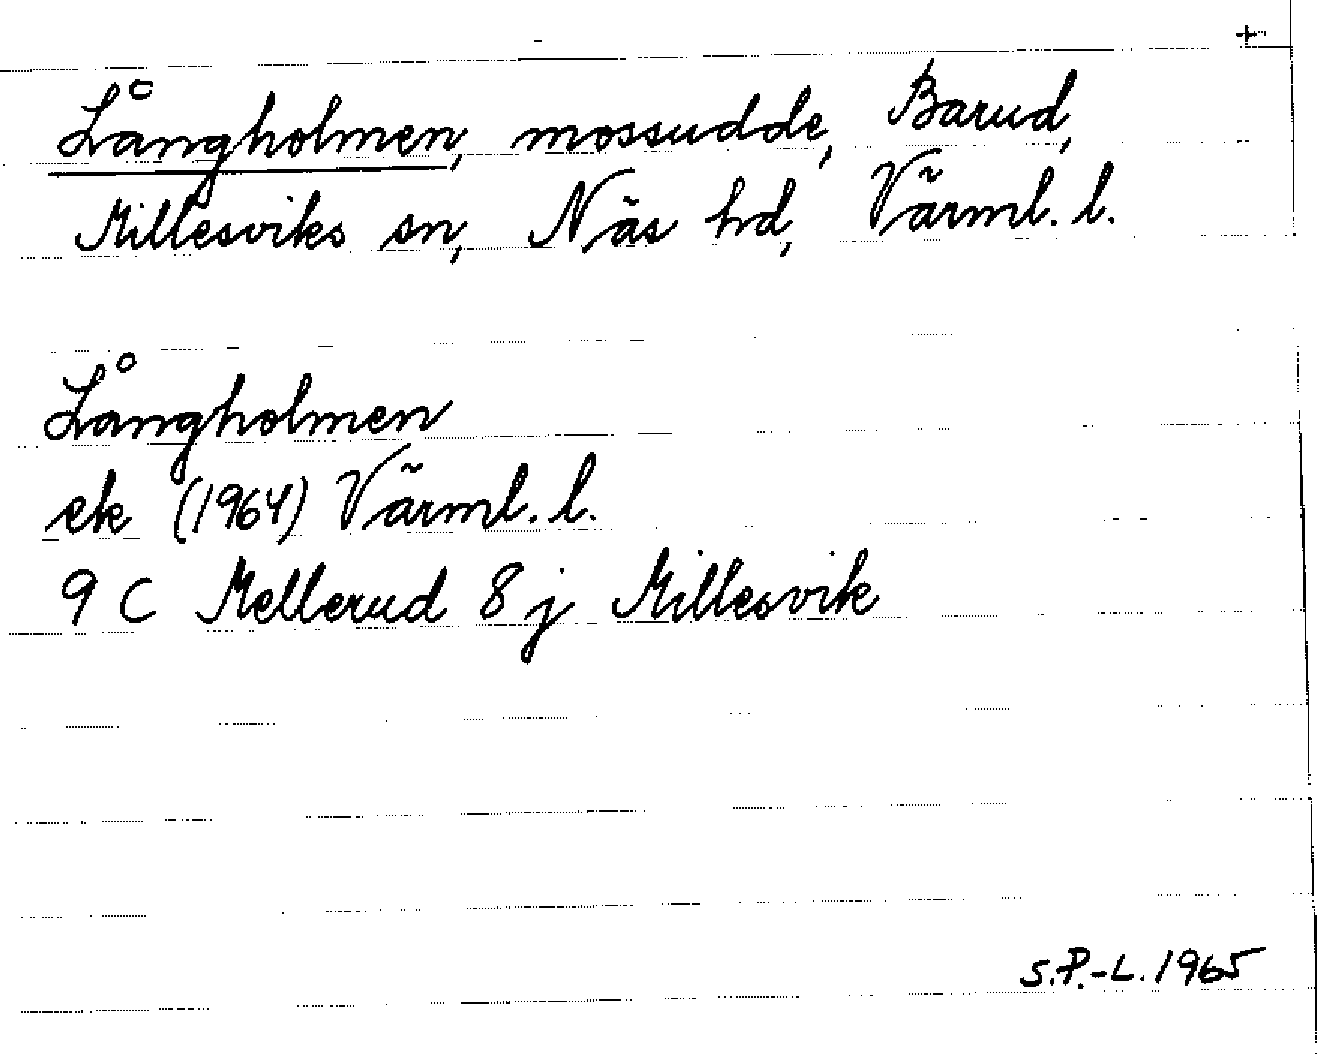 +
Långholmen, mossudde, Barud,
Millesviks sn, Näs hd, Värml. l.
Långholmen
ek (1964) Värml. l.
9 C Mellerud 8 j Millesvik
S.P.-L. 1965